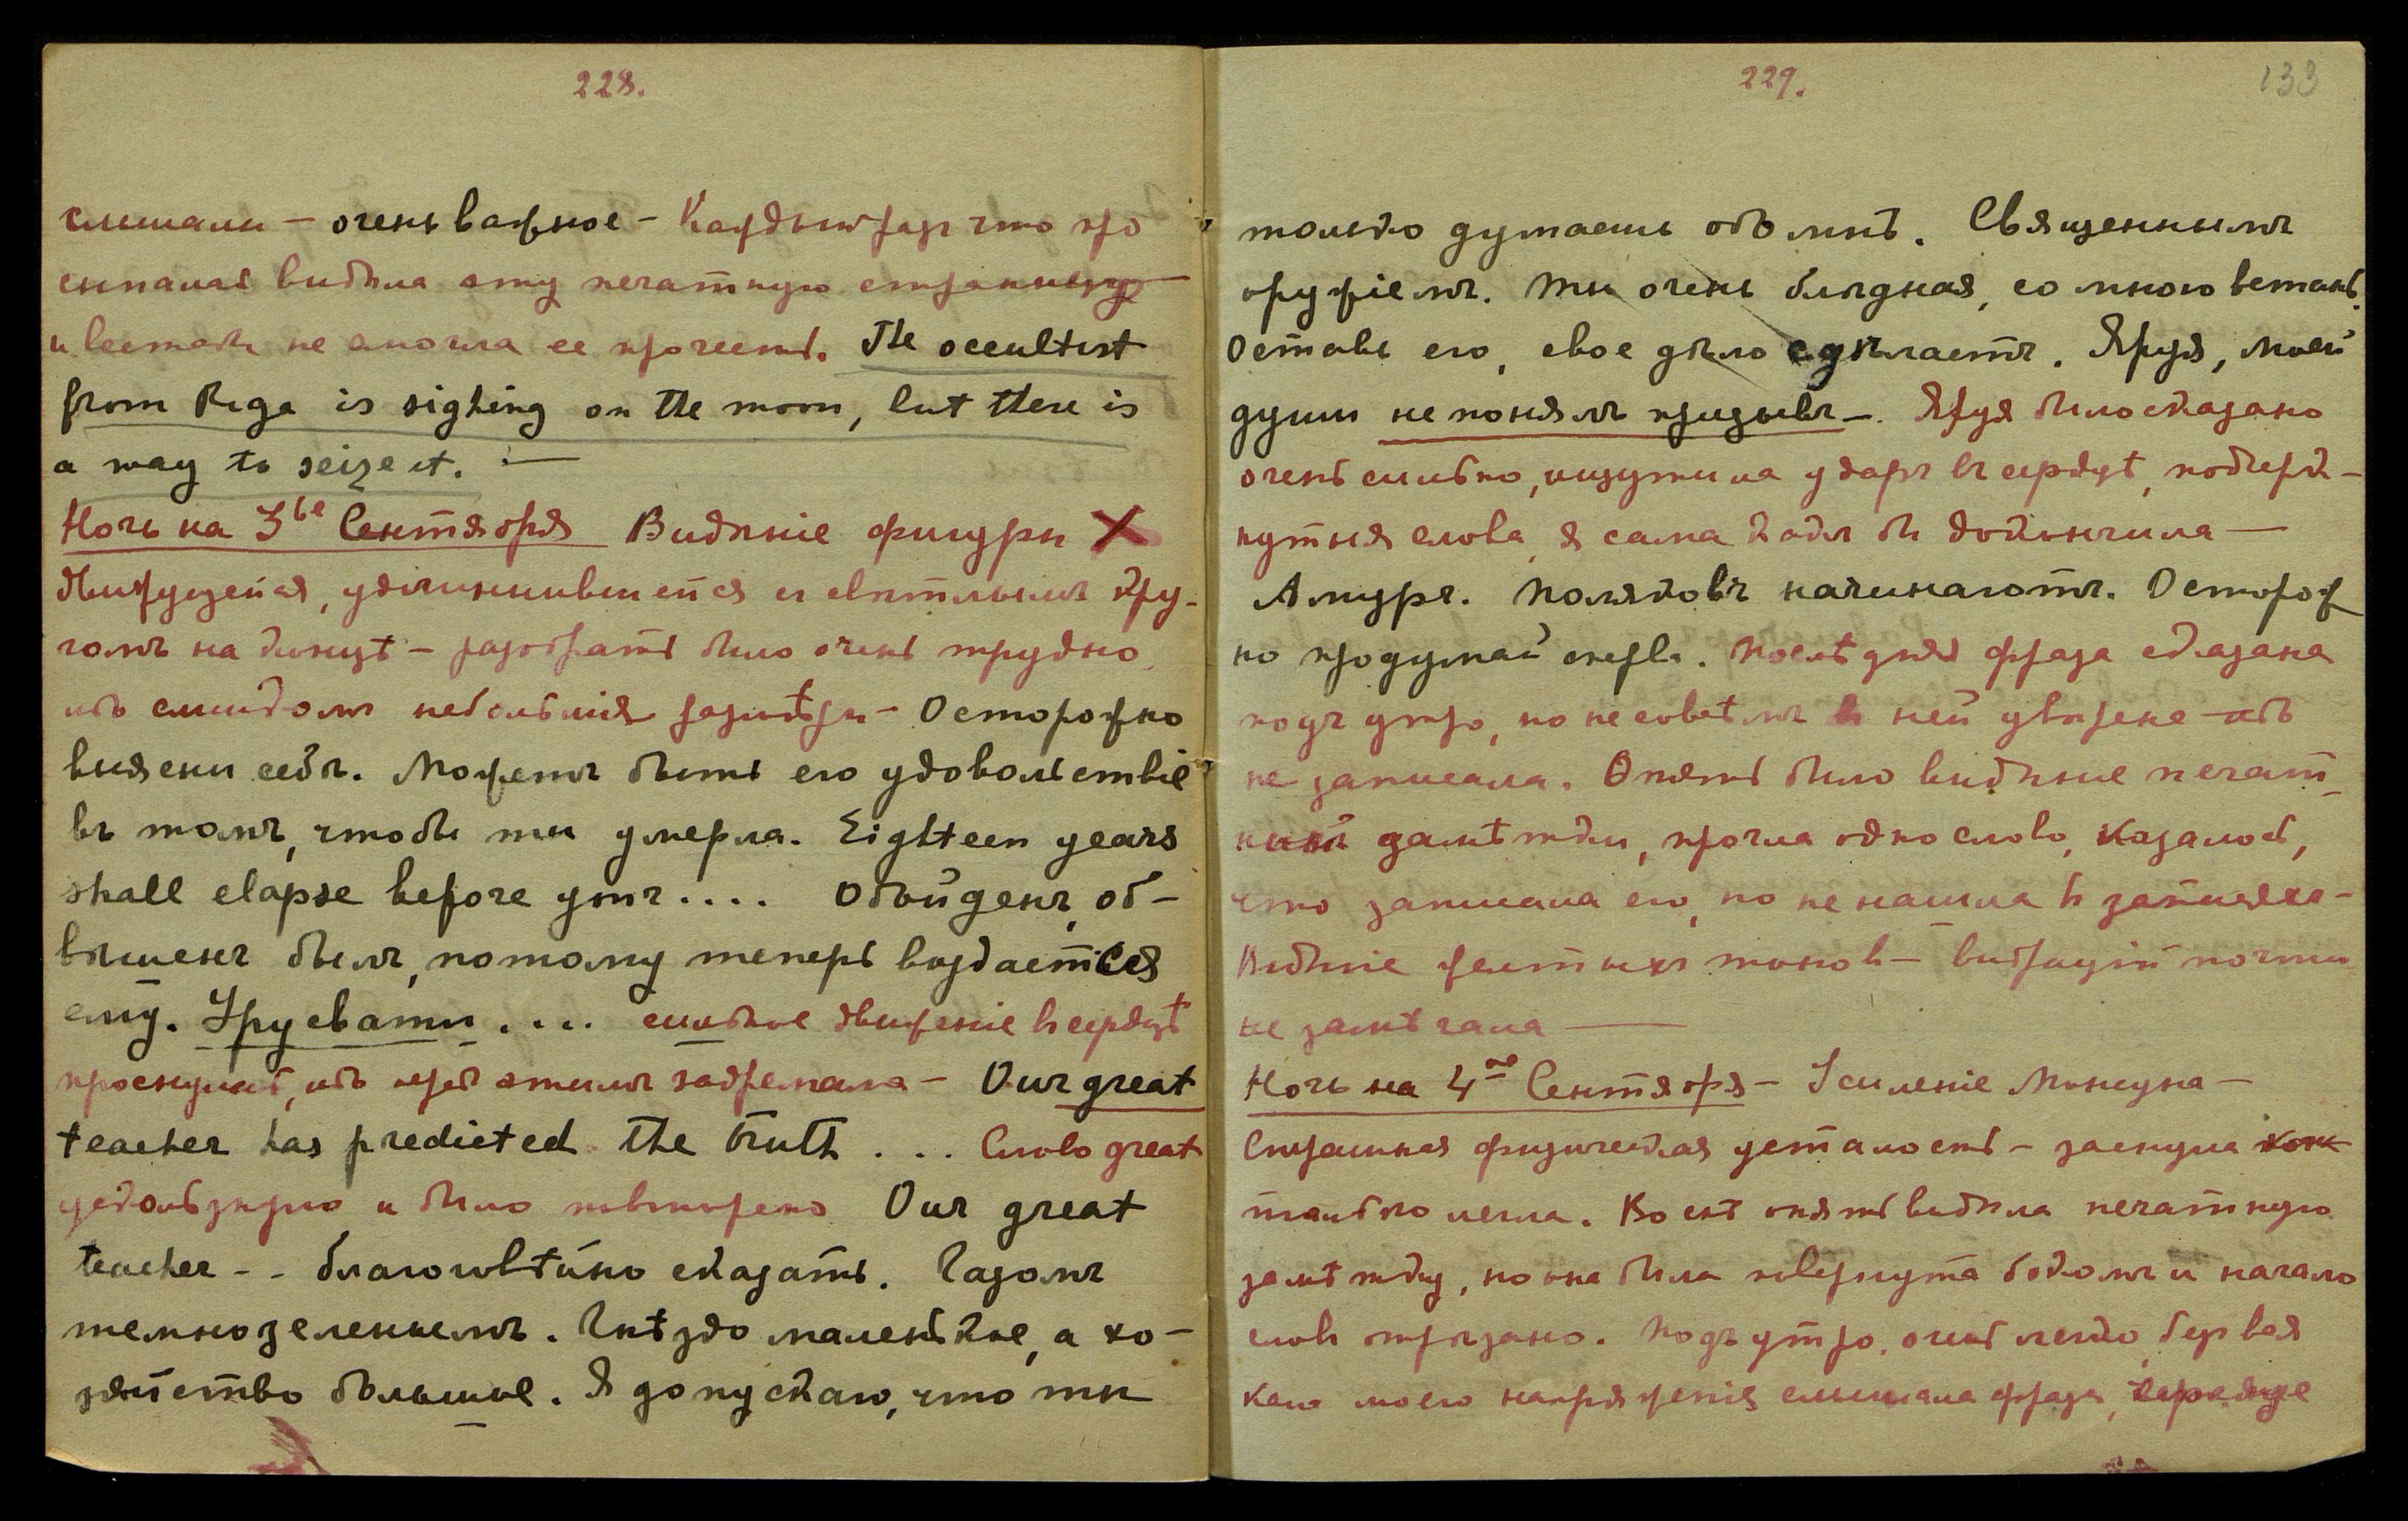 228.
слышали — очень важное — Каждый разъ что про
сыпалась видѣла эту печатную страницу
и все таки не смогла ее прочесть. The occultist
from Riga is sighing on the moon, but there is
a way to seize it. —
Ночь на 3ье Сентября Видѣніе фигуры X
движущейся, удлинившейся съ свѣтлымъ кру-
гомъ на концѣ — разобрать было очень трудно,
ибо слишкомъ небольшія размѣры — Осторожно
выясни себѣ. Можетъ быть его удовольствіе
въ томъ, чтобы ты умерла. Eighteen years
shall elapse before your.... Обойденъ, об-
вѣшенъ былъ, потому теперь воздается
ему. Урусвати .... сильное движеніе въ сердцѣ
проснулась, ибо передъ этимъ задремала — Our great
teacher has predicted the truth ... Слово great
ускользнуло и было повторено Our great
teacher - - благоговѣйно сказать. Газомъ
темнозеленымъ. Гнѣздо маленькое, а хо-
зяйство большое. Я допускаю, что ты
229.
133
только думаешь обо мнѣ. Священнымъ
оружіемъ. Ты очень блѣдная, со мною встань.
Оставь его, свое дѣло сдѣлаетъ. Яруя, моей
души не понялъ призывъ —. Яруя было сказано
очень сильно, ощутила ударъ въ сердцѣ, подчерк-
нутыя слова я сама какъ бы докончила —
Амуръ. Поляковъ начинаютъ. Осторож
но продумай сперва. Послѣдняя фраза сказана
подъ утро, но не совсѣмъ въ ней увѣрена ибо
не записала. Опять было видѣніе печат-
ной замѣтки, прочла одно слово, казалось,
что записала его, но не нашла въ записяхъ —
Видѣніе желтыхъ тоновъ — вибрацій почти
не замѣчала —
Ночь на 4ое Сентября — Усиленіе Монсуна —
Страшная физическая усталость — заснула какъ
только легла. Во снѣ опять видѣла печатную
замѣтку, но она была повернута бокомъ и начало
словъ отрѣзано. Подъ утро, очень легко, безъ вся
каго моего напряженія слышала фразы,